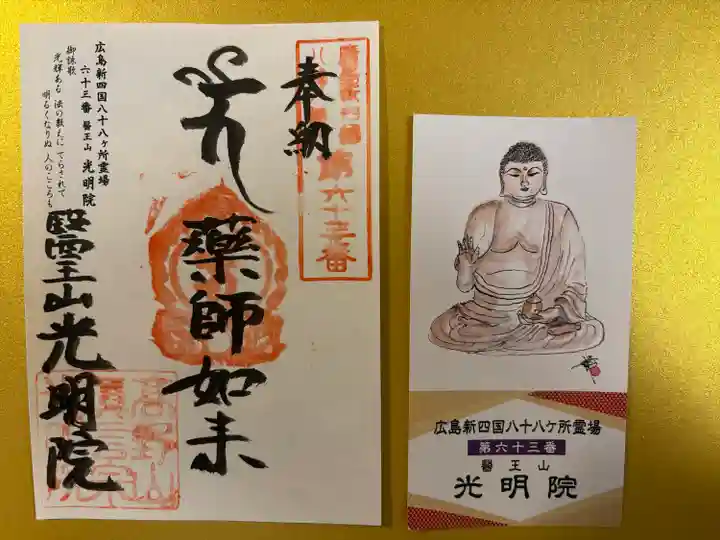 奉納
第六十三番
薬師如来
醫王山光明院
広島新四国八十八ケ所霊場
六十三番 醫王山 光明院
御詠歌
光輝ある 法の教えに てらされて
明るくなりぬ 人のこころも
高野山
広島新四国八十八ケ所霊場
第六十三番
醫王山
光明院